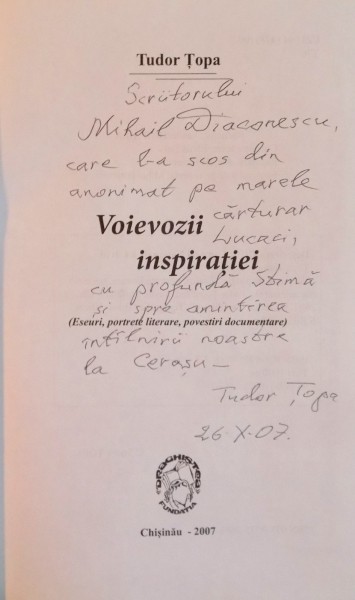 Tudor Țopa
Scriitorului
Mihail Diaconescu,
care l-a scos din
anonimat pe marele
cărturar
Voievozii
Lucaci,
inspirației
cu profundă stimă
și spre amintirea
(Eseuri, portrete literare, povestiri documentare)
întîlnirii noastre
la Cerașu –
Tudor Țopa
26-X-07.
DROGHISTEA
FUNDAȚIA
Chișinău - 2007